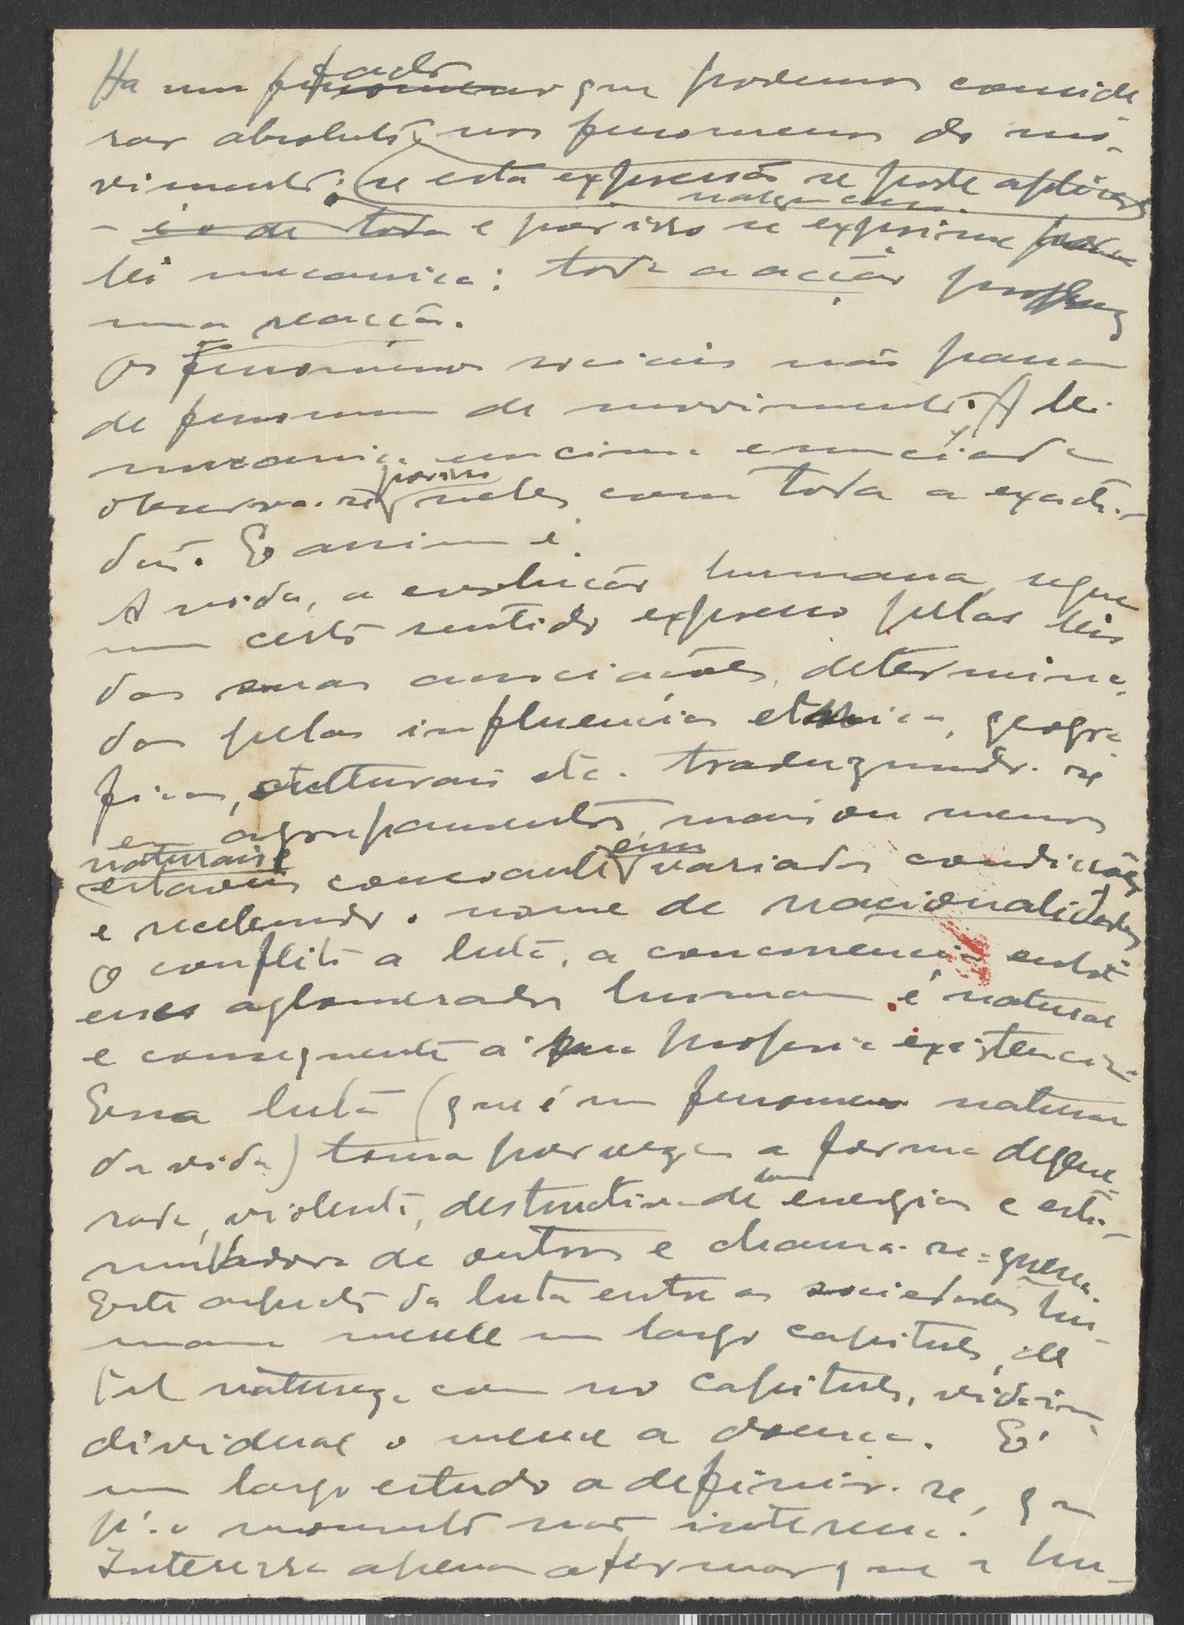 Ha um facto que podemos conside
rar absoluto, nos fenomenos do mo-
vimento: (se esta expressão se pode aplicar
- e o de toda e por isso se exprime
lei mecanica: toda a acção produz
uma reacção.
Os fenomenos sociais não passam
de fenomenos de movimento. A lei
mecanica encima enunciada
observa-se por isso neles com toda a exacti-
dão. E assim é.
A vida, a evolução humana, segue
um certo sentido expresso pelas leis
das suas associações, determina-
das pelas influencias etnicas, geogra
ficas, culturais etc. traduzindo-se
em agrupamentos mais ou menos
naturais
estaveis consoante em variadas condições
e recebendo o nome de nacionalidades
O conflito a luta, a concorrencia entre
esses aglomerados humanos é natural
e consequente á sua propria existencia.
Essa luta (que é um fenomeno natural
da vida) toma por vezes a forma degene
rada, violenta, destructiva de energias e esti-
muladora de outras e chama-se guerra.
Este aspecto da luta entre as sociedades hu-
manas merece um largo capitulo, de
tal natureza como no capitulo, vida in-
dividual o merece a doença. É
um largo estudo a definir-se, que
p.ª o momento não interessa.
Interessa apenas afirmar que a hu-